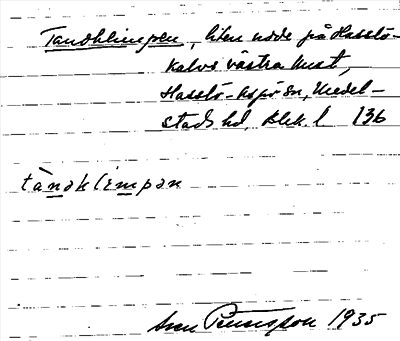 Tandklimpen, liten udde på Hasslö-
kalvs västra kust,
Hasslö-kapör sn, Medel-
stads hd, Blek. l 136
tànəklempən
Sven Petersson 1935